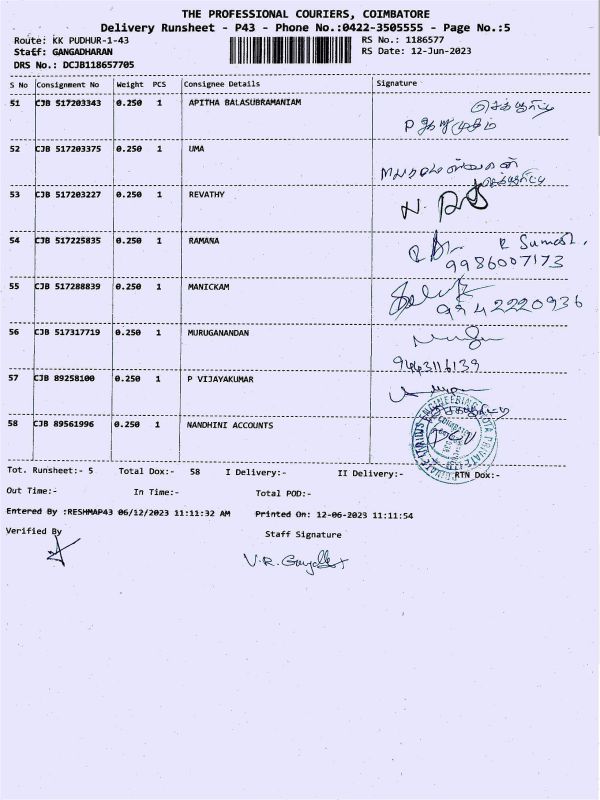 THE PROFESSIONAL COURIERS, COIMBATORE
Delivery Runsheet - P43 - Phone No.:0422-3505555 - Page No.:5
Route: KK PUDHUR-1-43 RS No.: 1186577
Staff: GANGADHARAN RS Date: 12-Jun-2023
DRS No.: DCJB118657705
S No Consignment No Weight PCS Consignee Details Signature
51 CJB 517203343 0.250 1 APITHA BALASUBRAMANIAM
52 CJB 517203375 0.250 1 UMA
53 CJB 517203227 0.250 1 REVATHY
N.
54 CJB 517225835 0.250 1 RAMANA
R Sumesh.
9986007173
55 CJB 517288839 0.250 1 MANICKAM
9942220936
56 CJB 517317719 0.250 1 MURUGANANDAN
9443116139
57 CJB 89258100 0.250 1 P VIJAYAKUMAR
58 CJB 89561996 0.250 1 NANDHINI ACCOUNTS
Tot. Runsheet:- 5 Total Dox:- 58 I Delivery:- II Delivery:- RTN Dox:-
Out Time:- In Time:- Total POD:-
Entered By :RESHMAP43 06/12/2023 11:11:32 AM Printed On: 12-06-2023 11:11:54
Verified By Staff Signature
V.R.